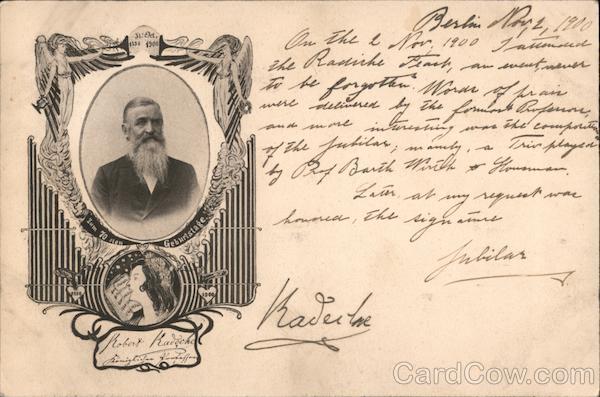 31. Oct.
1830 1900
Zum 70 sten Geburtstage
1830 1900
Robert Radecke
Königlicher Professor
Berlin Nov 2, 1900
On the 2 Nov, 1900 I attended
the Radecke Feast, an event never
to be forgotten. Words of praise
were delivered by the foremost Professors,
and more interesting was the composition
of the Jubilar; mainly, a Trio played
by Prof Barth Wirth & Hausmann.
Later, at my request was
honored, the signature
Jubilar
Radecke
CardCow.com